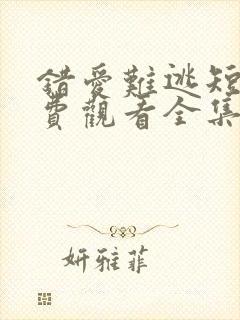 錯愛難逃短
費觀看全集
妍雅菲